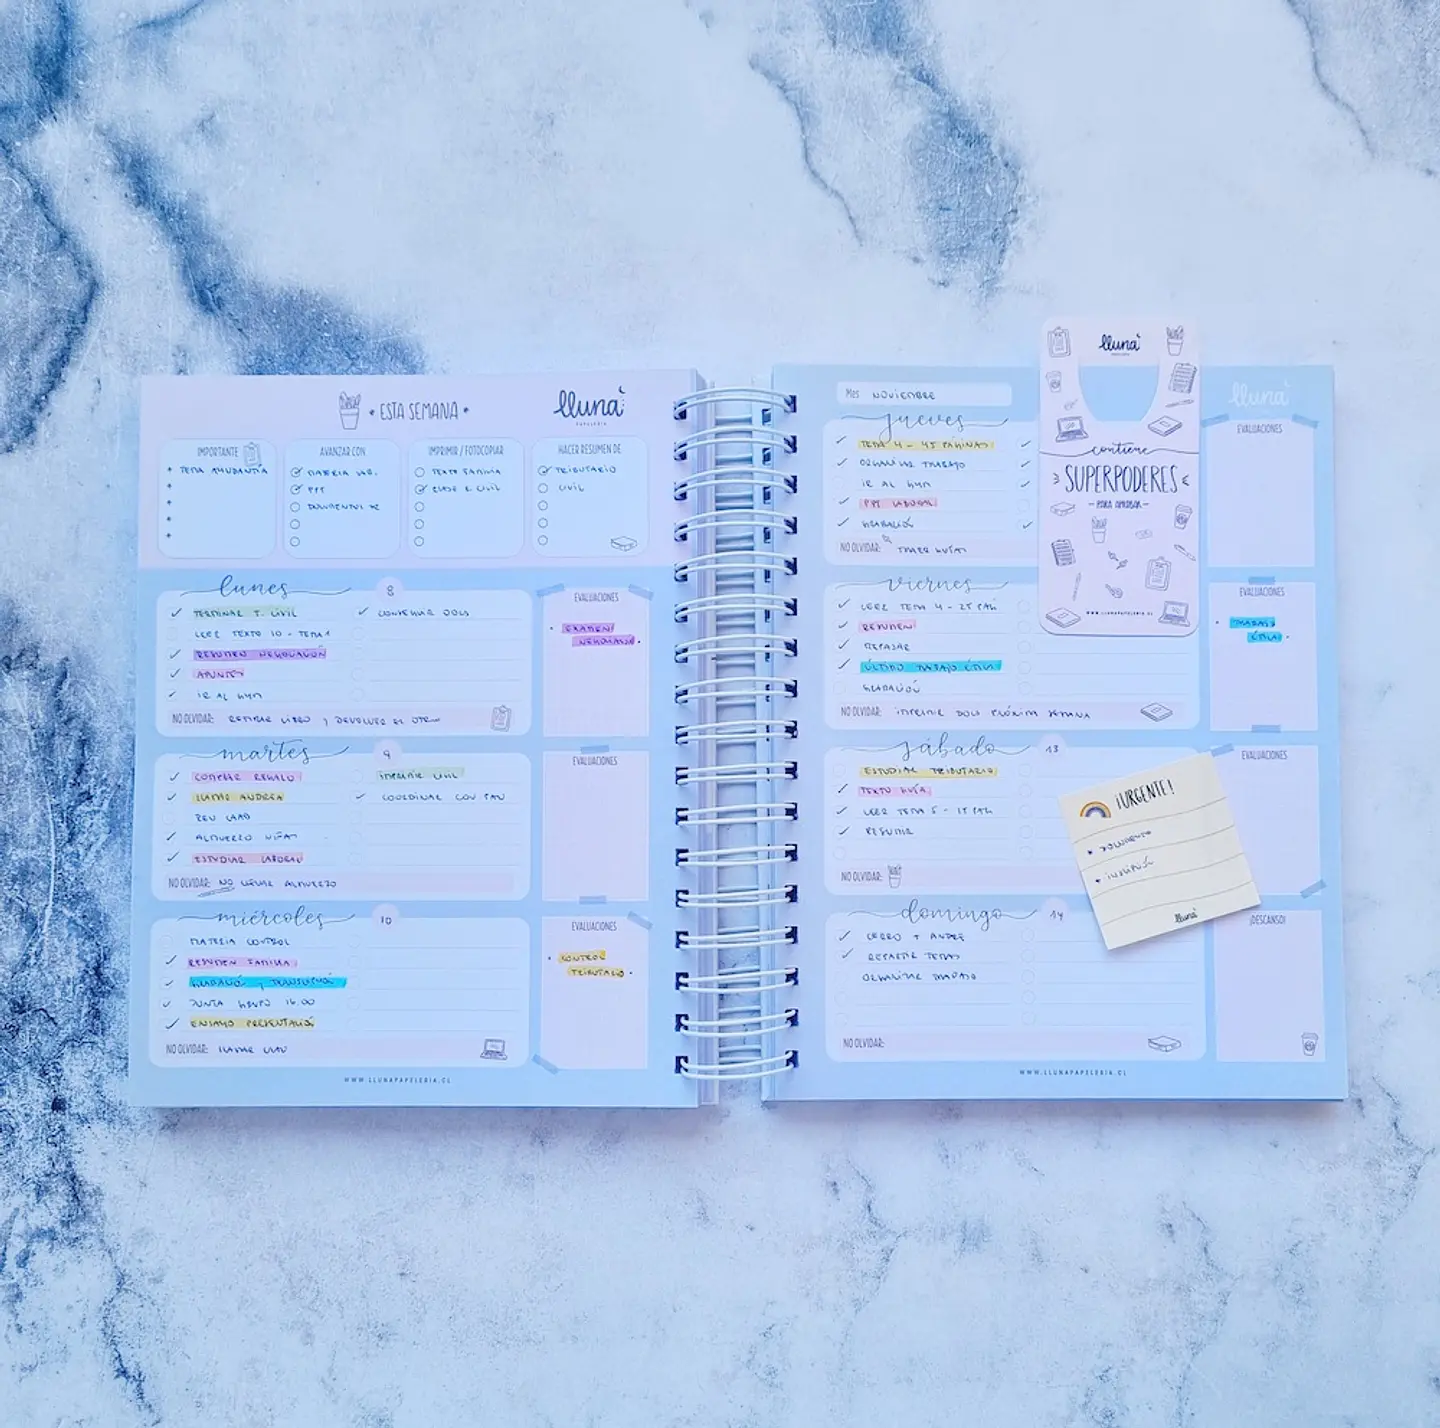 • ESTA SEMANA •
lluna
PAPELERIA
IMPORTANTE
TEMA AYUDANTÍA
AVANZAR CON
MATERIA LAB.
PPT
IMPRIMIR / FOTOCOPIAR
TEXTO FAMILIA
CLASE 2 CIVIL
HACER RESUMEN DE
TRIBUTARIO
CIVIL
lunes
8
TERMINAR T. CIVIL
LEER TEXTO 10 - TEMA 1
RESUMEN NEGOCIACIÓN
APUNTES
IR AL GYM
CONSEGUIR DOCS
NO OLVIDAR: RETIRAR LIBRO Y DEVOLVER EL OTRO
EVALUACIONES
EXAMEN
NEGOCIACIÓN
martes
9
COMPRAR REGALO
LLAMAR ANDREA
ALMUERZO VIÑA
ESTUDIAR LABORAL
IMPRIMIR CIVIL
COORDINAR CON
NO OLVIDAR: NO LLEVAR ALMUERZO
EVALUACIONES
miércoles
10
MATERIA CONTROL
RESUMEN FAMILIA
GRABACIÓN Y TRANSCRIPCIÓN
JUNTA GRUPO 16:00
ENSAYO PRESENTACIÓN
NO OLVIDAR: LLAMAR
EVALUACIONES
CONTROL
TRIBUTARIO
WWW.LLUNAPAPELERIA.CL
Mes NOVIEMBRE
jueves
TEMA 4 - 45 PÁGINAS
ORGANIZAR TRABAJO
IR AL GYM
PPT LABORAL
GRABACIÓN
NO OLVIDAR: TRAER GUÍAS
lluna
EVALUACIONES
viernes
LEER TEMA 4 - 25 PÁG
RESUMEN
REPASAR
ÚLTIMO TRABAJO ÉTICA
GRABACIÓN
NO OLVIDAR: IMPRIMIR DOCS PRÓXIMA SEMANA
EVALUACIONES
TRABAJO
ÉTICA
sábado
13
ESTUDIAR TRIBUTARIO
TEXTO GUÍA
LEER TEMA 5 - 15 PÁG
RESUMIR
NO OLVIDAR:
EVALUACIONES
domingo
14
CERRO + ANDRE
REPARTIR TEMAS
ORGANIZAR TRABAJO
NO OLVIDAR:
¡DESCANSO!
WWW.LLUNAPAPELERIA.CL
lluna
PAPELERIA
contiene
SUPERPODERES
- PARA APROBAR -
WWW.LLUNAPAPELERIA.CL
¡URGENTE!
lluna